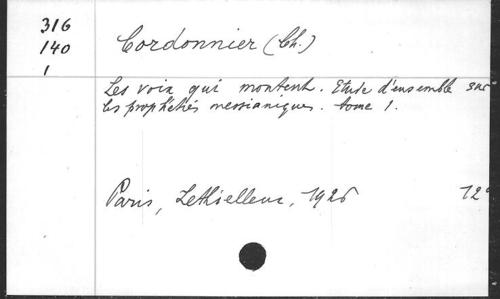 316
140
1
Cordonnier (Ch.)
Les voix qui montent. Etude d'ensemble sur
les prophéties messianiques. tome 1.
Paris, Lethielleux, 1926
12°